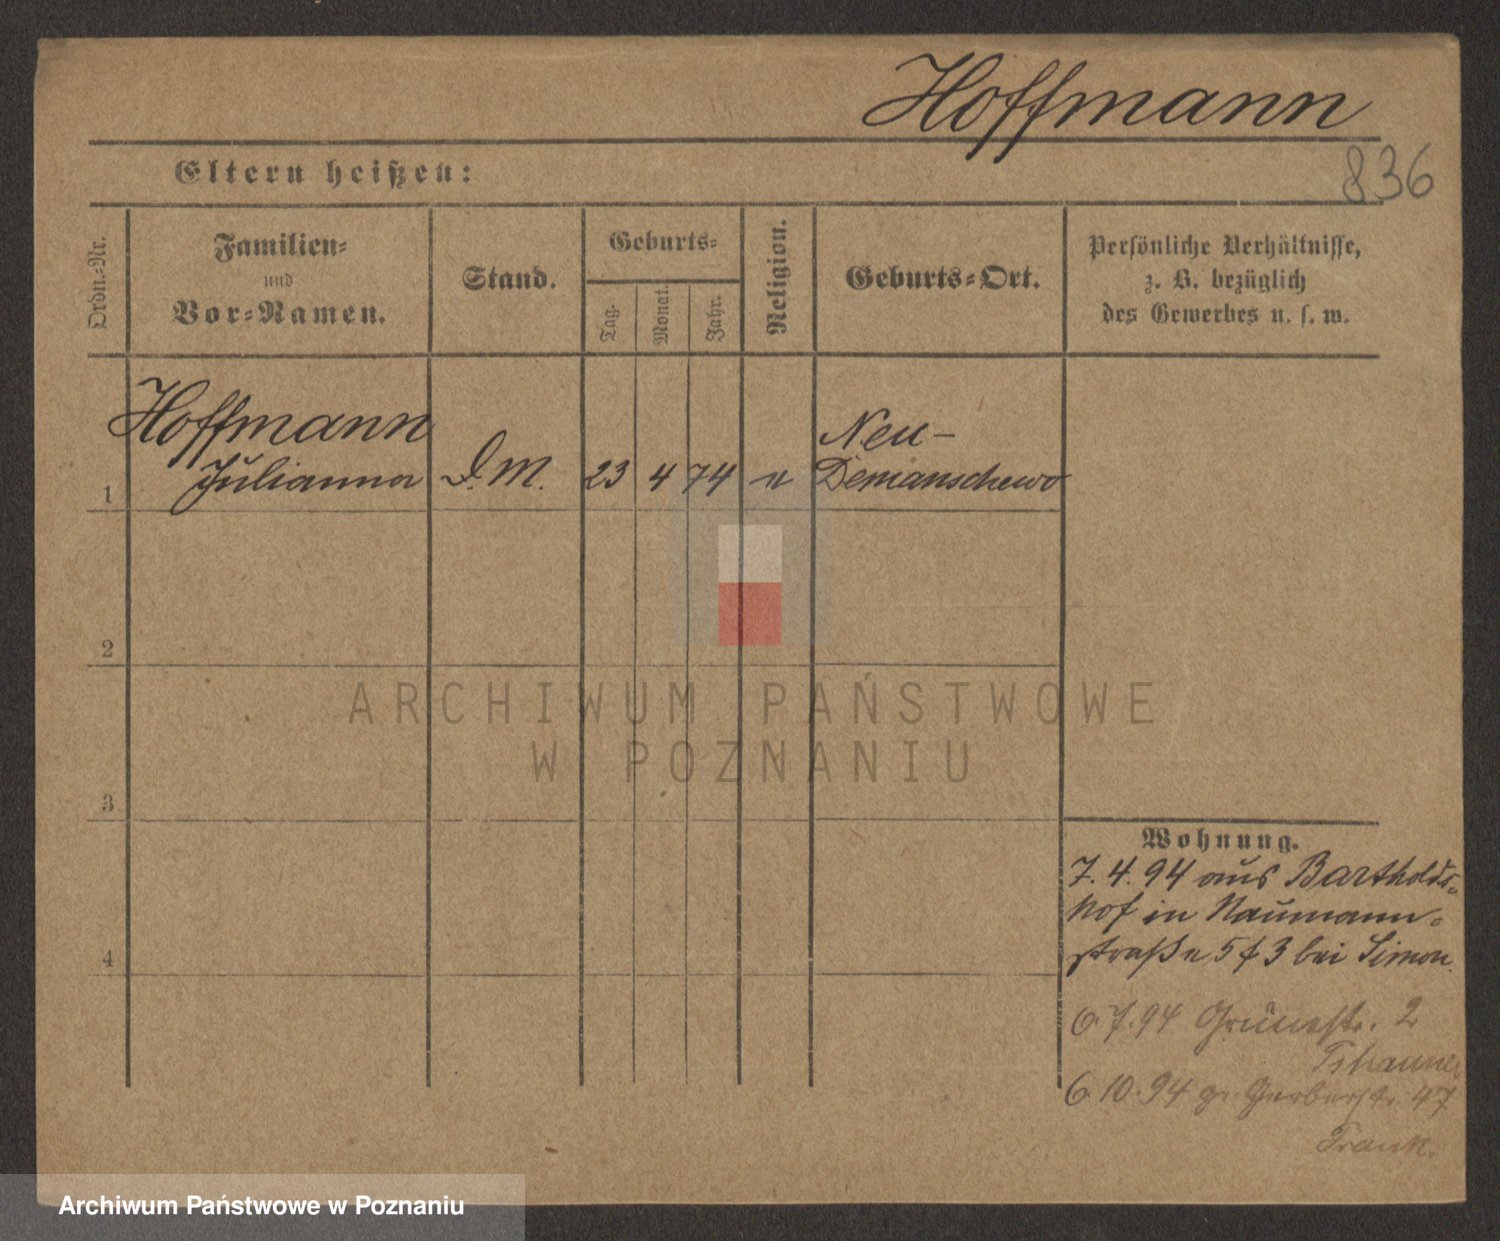 Hoffmann
836
Eltern heißen:
Ordn.-Nr.
Familien-
und
Vor-Namen.
Stand.
Geburts-
Tag.
Monat.
Jahr.
Religion.
Geburts-Ort.
Persönliche Verhältnisse,
z. B. bezüglich
des Gewerbes u. s. w.
1
Hoffmann
Julianna
D. M.
23
4
74
Neu-
Demanschewo
2
3
4
Wohnung.
7. 4. 94 aus Bartholds-
hof in Naumann-
straße 5 f 3 bei Simon
6. 7. 94 Grünestr. 2
6. 10. 94 gr. Gerberstr. 47
Frank.
ARCHIWUM PAŃSTWOWE
W POZNANIU
Archiwum Państwowe w Poznaniu